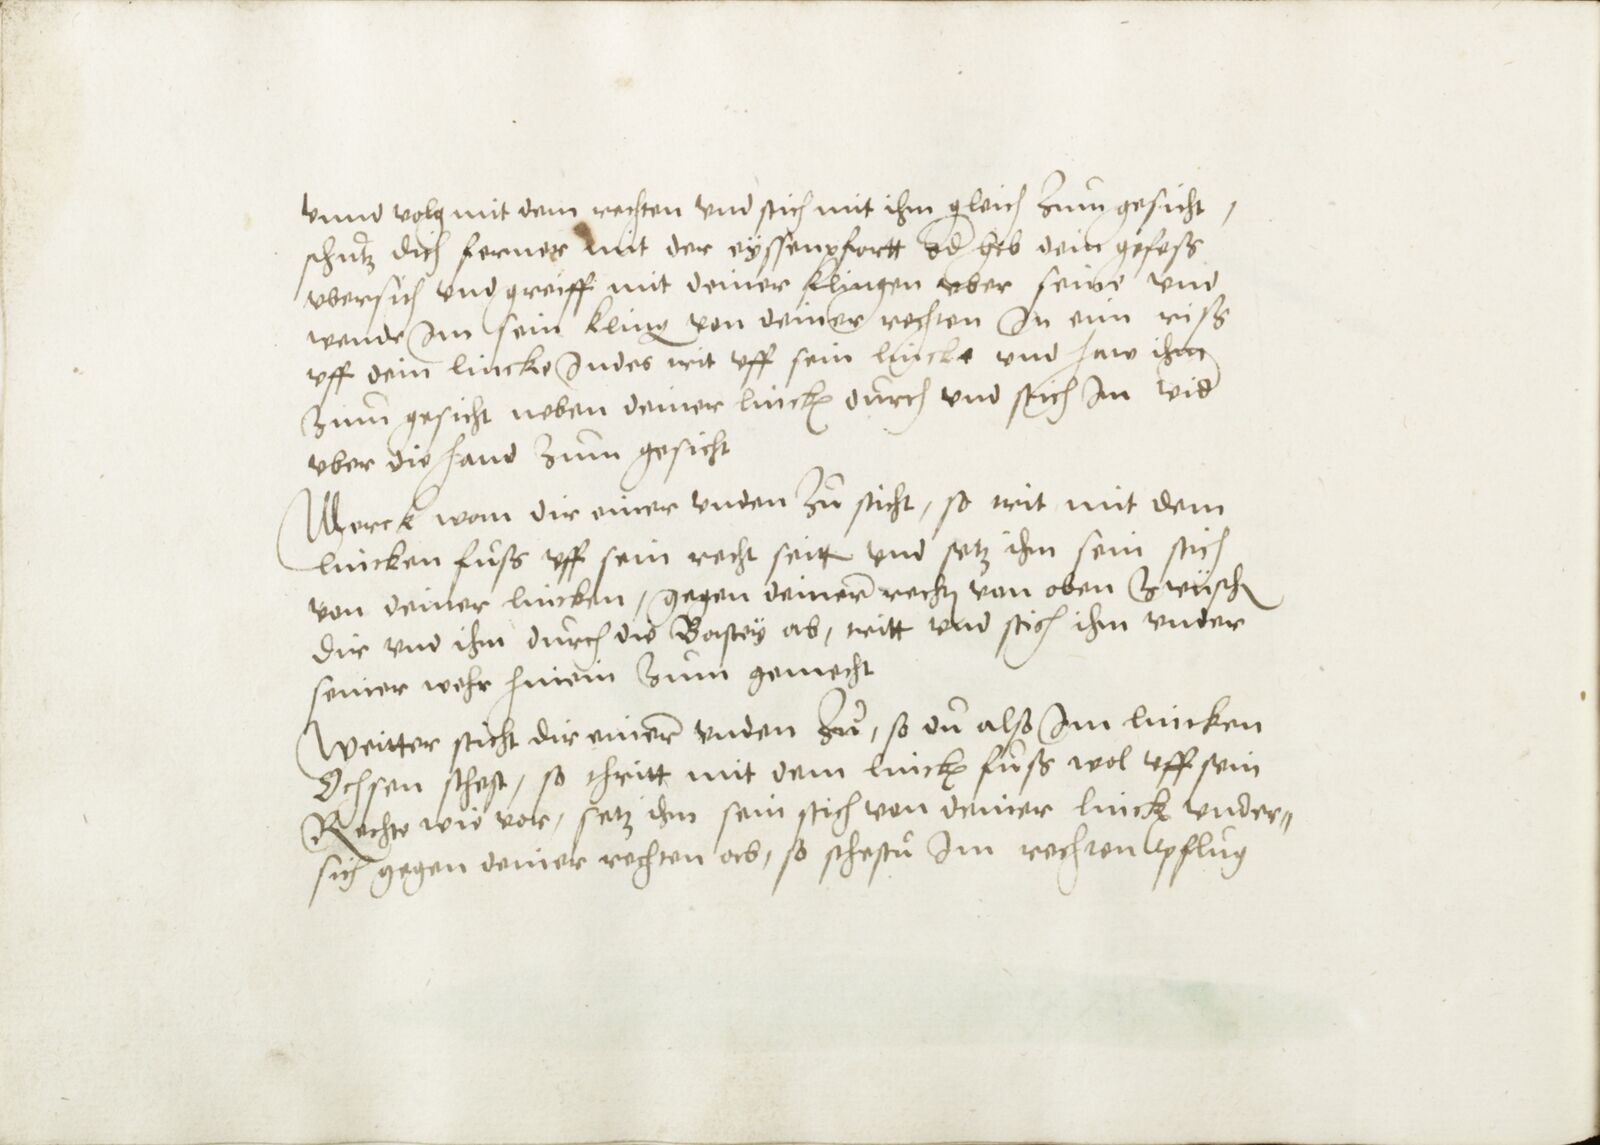 vnnd volg mit dem rechten vnd stich mit ihm gleich Zum gesicht,
schutz dich ferner mit der eyssenpfortt od heb dein gefess
vbersich vnd greiff mit deiner klingen vber seine vnd
wende Im sein kling von deiner rechten In eim riss
vff dein lincke Indes trit vff sein lincke vnd haw ihm
Zum gesicht neben deiner linck durch vnd stich Im wid
vber die hand Zum gesicht
Merck wan dir einer vnden Zu sticht, so trit mit dem
lincken fuss vff sein recht seitt vnd setz ihm sein stich
von deiner lincken, gegen deiner rech von oben Zwüsch
dir vnd ihm durch die Bastey ab, tritt vnd stich ihm vnder
seiner wehr hinein Zum gemecht
Weitter sticht dir einer vnden Zu, so du also Im lincken
Ochsen sthest, so thritt mit dem linck fuss wol vff sein
Rechte wie vor, setz ihm sein stich von deiner linck vnder=
sich gegen deiner rechten ab, so sthestu Im rechten pflug